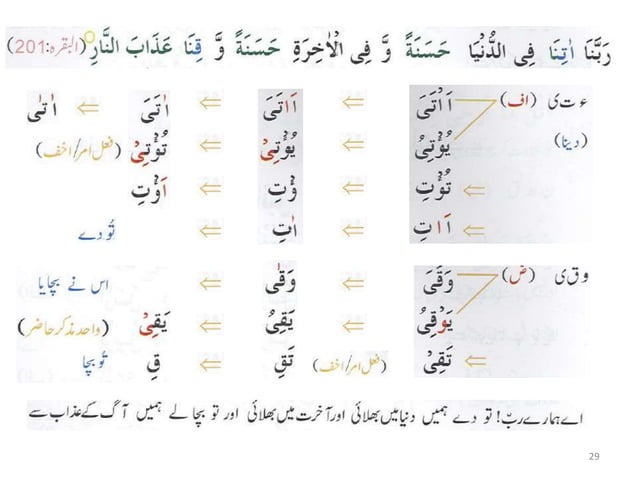 رَبَّنَا اٰتِنَا فِى الدُّنْيَا حَسَنَةً وَّ فِى الْاٰخِرَةِ حَسَنَةً وَّ قِنَا عَذَابَ النَّارِ (البقرہ:201)
ء ت ی (اف) اَ اْتَىَ ⇐ اَ اتَىَ ⇐ اٰتَىَ ⇐ اٰتٰى
(دینا) يُؤْتِىُ ⇐ يُؤْتِىْ ⇐ تُؤْتِىْ (فعل امر/اخف)
⇐ تُؤْتِ ⇐ ؤْتِ ⇐ اَؤْتِ
⇐ اَ اتِ ⇐ اٰتِ ⇐ تُو دے
و ق ی (ض) وَقَىَ ⇐ وَقٰى ⇐ اس نے بچایا
يَوْقِىُ ⇐ يَقِىُ ⇐ يَقِىْ (واحد مذکر حاضر)
⇐ تَقِىْ (فعل امر/اخف) تَقِ ⇐ قِ تُو بچا
اے ہمارے ربّ! تو دے ہمیں دنیا میں بھلائی اور آخرت میں بھلائی اور تو بچا لے ہمیں آگ کے عذاب سے
29